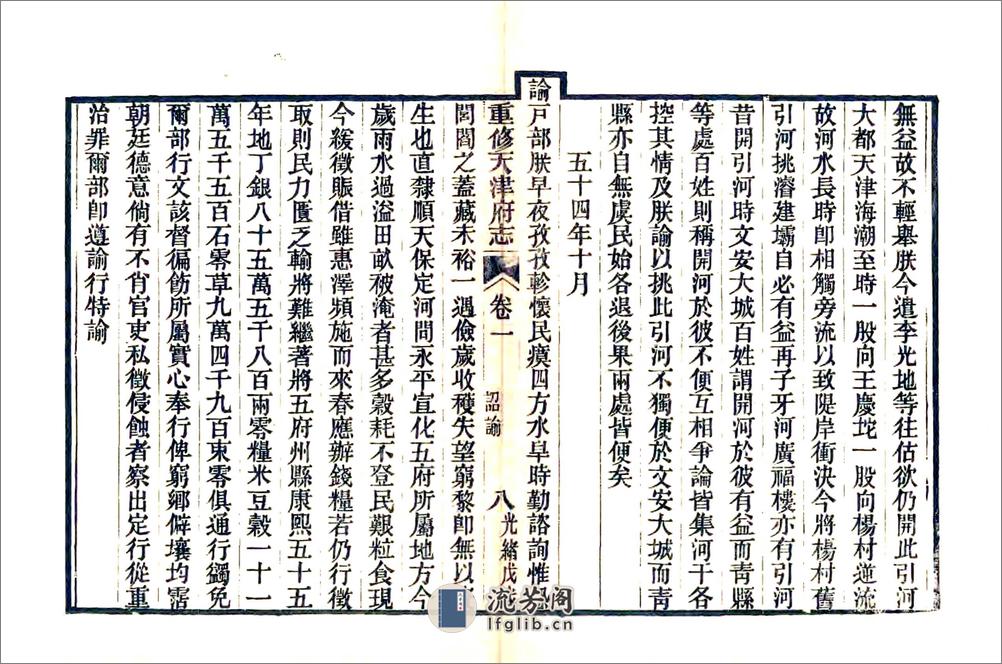 無益故不輕舉朕今遣李光地等往估欲仍開此引河
大都天津海潮至時一股向王慶坨一股向楊村逆流
故河水長時卽相觸旁流以致隄岸衝決今將楊村舊
引河挑濬建壩自必有益再子牙河廣福樓亦有引河
昔開引河時文安大城百姓謂開河於彼有益而靑縣
等處百姓則稱開河於彼不便互相爭論皆集河干各
控其情及朕諭以挑此引河不獨便於文安大城而靑
縣亦自無虞民始各退後果兩處皆便矣
五十四年十月
諭戸部朕早夜孜孜軫懷民瘼四方水旱時勤諮詢惟
重修天津府志 卷一 詔諭 八 光緒戊
閭閻之蓋藏未裕一遇儉歲收穫失望窮黎卽無以
生也直隸順天保定河間永平宣化五府所屬地方今
歲雨水過溢田畝被淹者甚多穀耗不登民艱粒食現
今緩徵賑借雖惠澤頻施而來春應辦錢糧若仍行徵
取則民力匱乏輸將難繼著將五府州縣康熙五十五
年地丁銀八十五萬五千八百兩零糧米豆穀一十一
萬五千五百石零草九萬四千九百束零俱通行蠲免
爾部行文該督徧飭所屬實心奉行俾窮鄉僻壤均霑
朝廷德意倘有不肖官吏私徵侵蝕者察出定行從重
治罪爾部卽遵諭行特諭
流芳阁
lfglib.cn